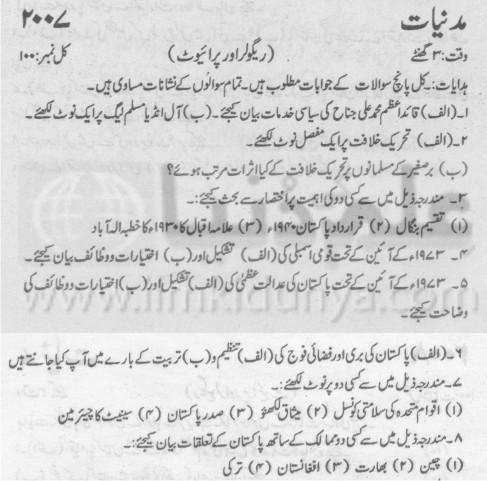 مدنیات ۲۰۰۷
وقت: ۳ گھنٹے (ریگولر اور پرائیوٹ) کل نمبر: ۱۰۰
ہدایات:۔ کل پانچ سوالات کے جوابات مطلوب ہیں۔ تمام سوالوں کے نشانات مساوی ہیں۔
۱۔ (الف) قائد اعظم محمد علی جناح کی سیاسی خدمات بیان کیجئے۔ (ب) آل انڈیا مسلم لیگ پر ایک نوٹ لکھئے۔
۲۔ (الف) تحریک خلافت پر ایک مفصل نوٹ لکھئے۔
(ب) برصغیر کے مسلمانوں پر تحریک خلافت کے کیا اثرات مرتب ہوئے؟
۳۔ مندرجہ ذیل میں سے کسی دو کی اہمیت پر اختصار سے بحث کیجئے:۔
(۱) تقسیم بنگال (۲) قرارداد پاکستان ۱۹۴۰ء (۳) علامہ اقبال کا ۱۹۳۰ء کا خطبہ الہ آباد
۴۔ ۱۹۷۳ء کے آئین کے تحت قومی اسمبلی کی (الف) تشکیل اور (ب) اختیارات و وظائف بیان کیجئے۔
۵۔ ۱۹۷۳ء کے آئین کے تحت پاکستان کی عدالت عظمیٰ کی (الف) تشکیل اور (ب) اختیارات و وظائف کی
وضاحت کیجئے۔
www.ilmkidunya.com
۶۔ (الف) پاکستان کی بری اور فضائی فوج کی (الف) تنظیم و (ب) تربیت کے بارے میں آپ کیا جانتے ہیں
۷۔ مندرجہ ذیل میں سے کسی دو پر نوٹ لکھئے:۔
(۱) اقوام متحدہ کی سلامتی کونسل (۲) میثاق لکھنؤ (۳) صدر پاکستان (۴) سینیٹ کا چیئرمین
۸۔ مندرجہ ذیل میں سے کسی دو ممالک کے ساتھ پاکستان کے تعلقات بیان کیجئے:۔
(۱) چین (۲) بھارت (۳) افغانستان (۴) ترکی